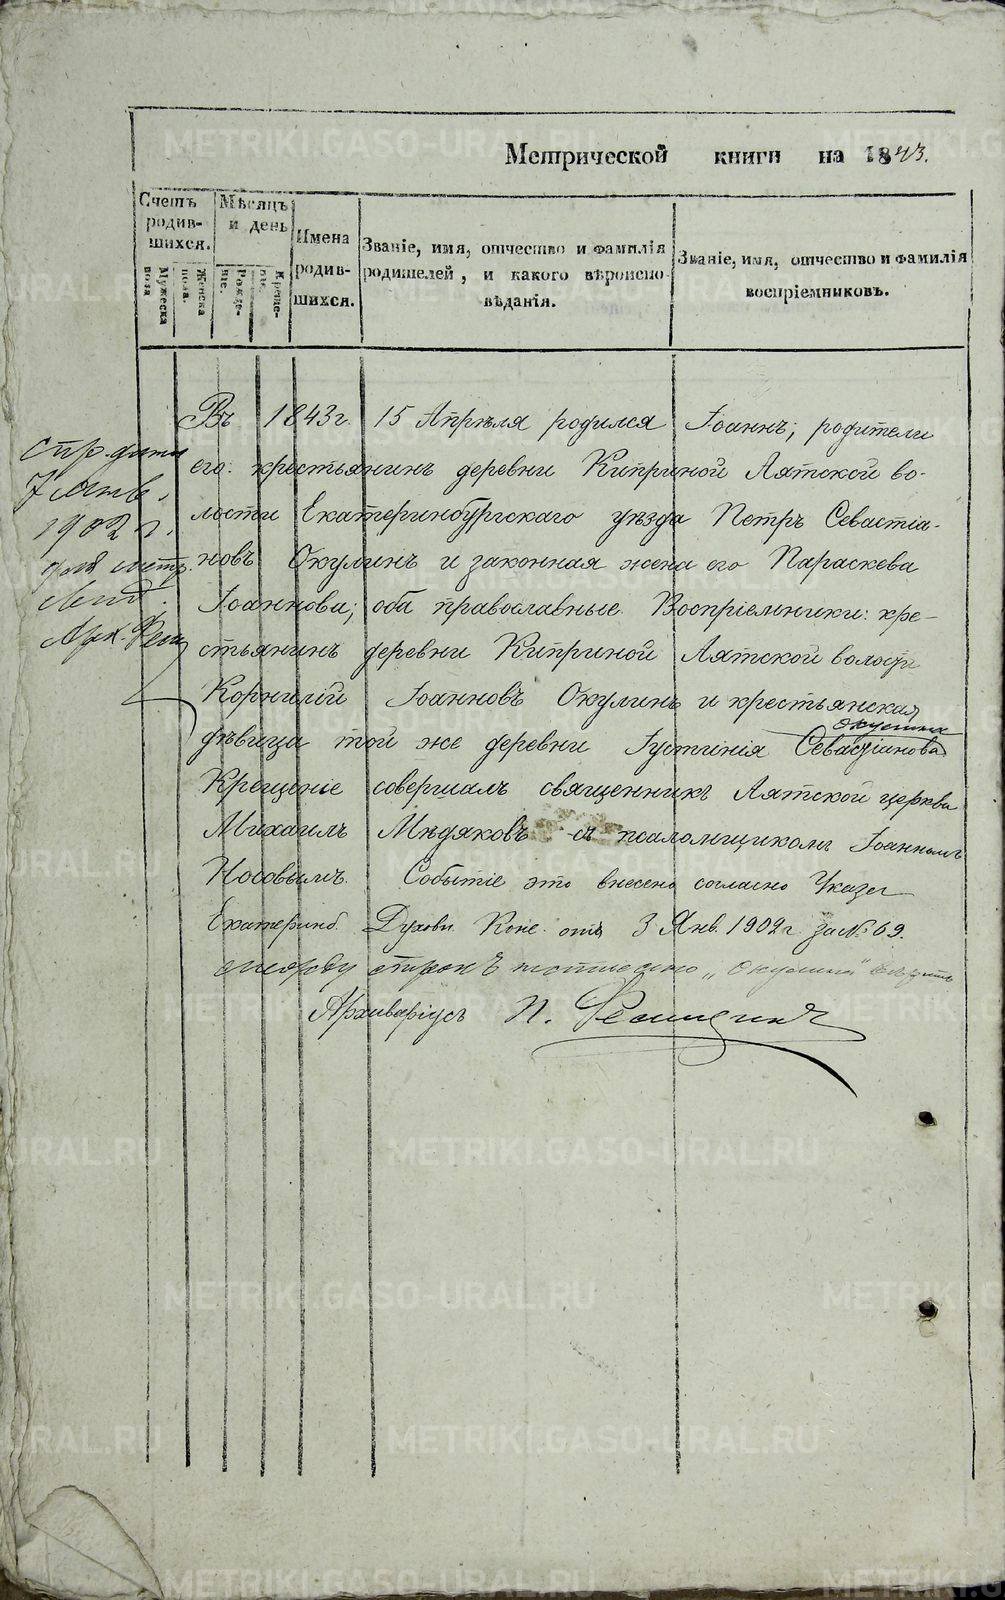 Метрической книги на 1843.
Счетъ родив-шихся.
Мужеска пола
Женска пола.
Мѣсяцъ и день
Рожде-нія.
Креще-нія.
Имена родив-шихся.
Званіе, имя, отчество и фамилія родителей, и какого вѣроиспо-вѣданія.
Званіе, имя, отчество и фамилія воспріемниковъ.
Въ 1843 г. 15 Апрѣля родился Іоаннъ; родители
его: крестьянинъ деревни Киприной Аятской во-
лости Екатеринбургскаго уѣзда Петръ Севастіа-
новъ Окулинъ и законная жена его Параскева
Іоаннова; оба православные. Воспріемники: кре-
стьянинъ деревни Киприной Аятской волости
Корнилій Іоанновъ Окулинъ и крестьянская
Окулина
дѣвица той же деревни Іустинія Севастіанова
Крещеніе совершалъ священникъ Аятской церкви
Михаилъ Мѣдяковъ съ псаломщикомъ Іоанномъ
Носовымъ. Событіе это внесено согласно Указа
Екатеринб. Духовн. Конс. отъ 3 Янв. 1902 г. за № 69.
"Окулина"
Архиваріусъ П.
7 Янв.
1902 г.
METRIKI.GASO-URAL.RU